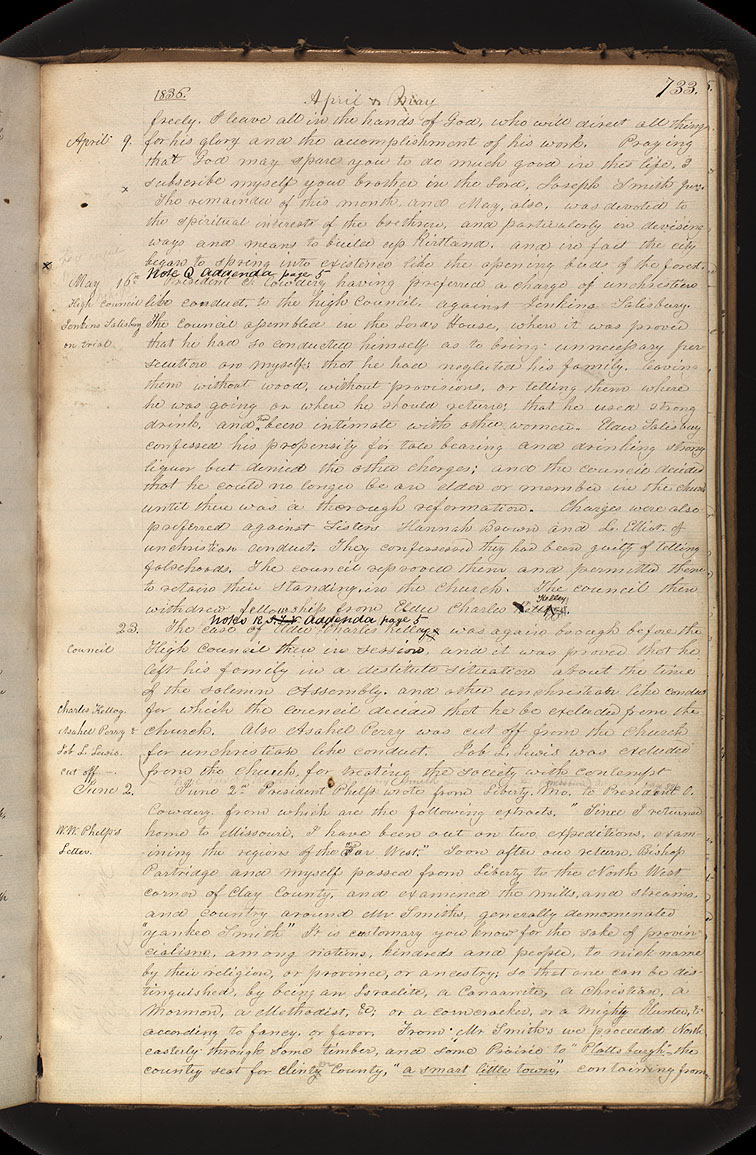 1836.
April & May
733.
freely. I leave all in the hands of God, who will direct all things
April 9.
for his glory and the accomplishment of his work. Praying
that God may spare you to do much good in this life, I
subscribe myself your brother in the Lord, Joseph Smith Junr.
x
The remainder of this month and May, also, was devoted to
the spiritual interests of the brethren, and particularly in devising
ways and means to build up Kirtland. and in fact the city
began to spring into existence like the opening buds of the forest.
x
Note Q Addenda page 5
May 16th
President O. Cowdery having preferred a charge of unchristian
High Council
like conduct, to the high Council, against Jenkins Salisbury.
Jenkins Salisbury
The council assembled in the Lord's House, where it was proved
on trial
that he had so conducted himself as to bring unnecessary per
secution on myself; that he had neglected his family. leaving
them without wood, without provisions, or telling them where
he was going or when he should return; that he used strong
drink, and had been intimate with other women. Elder Salisbury
confessed his propensity for tale bearing and drinking strong
liquor but denied the other charges; and the council decided
that he could no longer be an elder or member in the church
until there was a thorough reformation. Charges were also
preferred against Sisters Hannah Brown and L. Elliot. of
unchristian conduct. They confessed they had been guilty of telling
falsehoods. The council reproved them and permitted them
to retain their standing in the church. The council then
withdrew fellowship from Elder Charles Kelley
Note R Addenda page 5
23.
The case of Elder Charles Kellog was again brough before the
Council
High Council then in session, and it was proved that he
left his family in a destitute situation about the time
of the solemn Assembly, and other unchristian like conduct
Charles Kellog.
for which the council decided that he be excluded from the
Asahel Perry &
church. Also Asahel Perry was cut off from the Church
Job L. Lewis.
for unchristian like conduct. Job L. Lewis was excluded
cut off
from the church, for treating the society with contempt
June 2.
June 2nd President Phelps wrote from Liberty, Mo. to President O.
Cowdery. from which are the following extracts. "Since I returned
W. W. Phelps's
home to Missouri, I have been out on two expeditions, exam-
Letter.
ining the regions of the "Far West." Soon after our return, Bishop
Partridge and myself passed from Liberty to the North West
corner of Clay County, and examined the mills, and streams,
and country around Mr Smiths, generally demominated
"yankee Smith" It is customary you know for the sake of provin-
cialisms, among nations, kindreds and people, to nick name
by their religion, or province, or ancestry; so that one can be dis-
tinguished, by being an Israelite, a Canaanite, a Christian, a
Mormon, a Methodist, &c; or a corncracker, or a mighty Hunter, &c
according to fancy. or favor. From Mr Smith's we proceeded North
easterly through some timber, and some Prairie to "Plattsburgh" the
county seat for Clinton County, "a smart little town," containing from